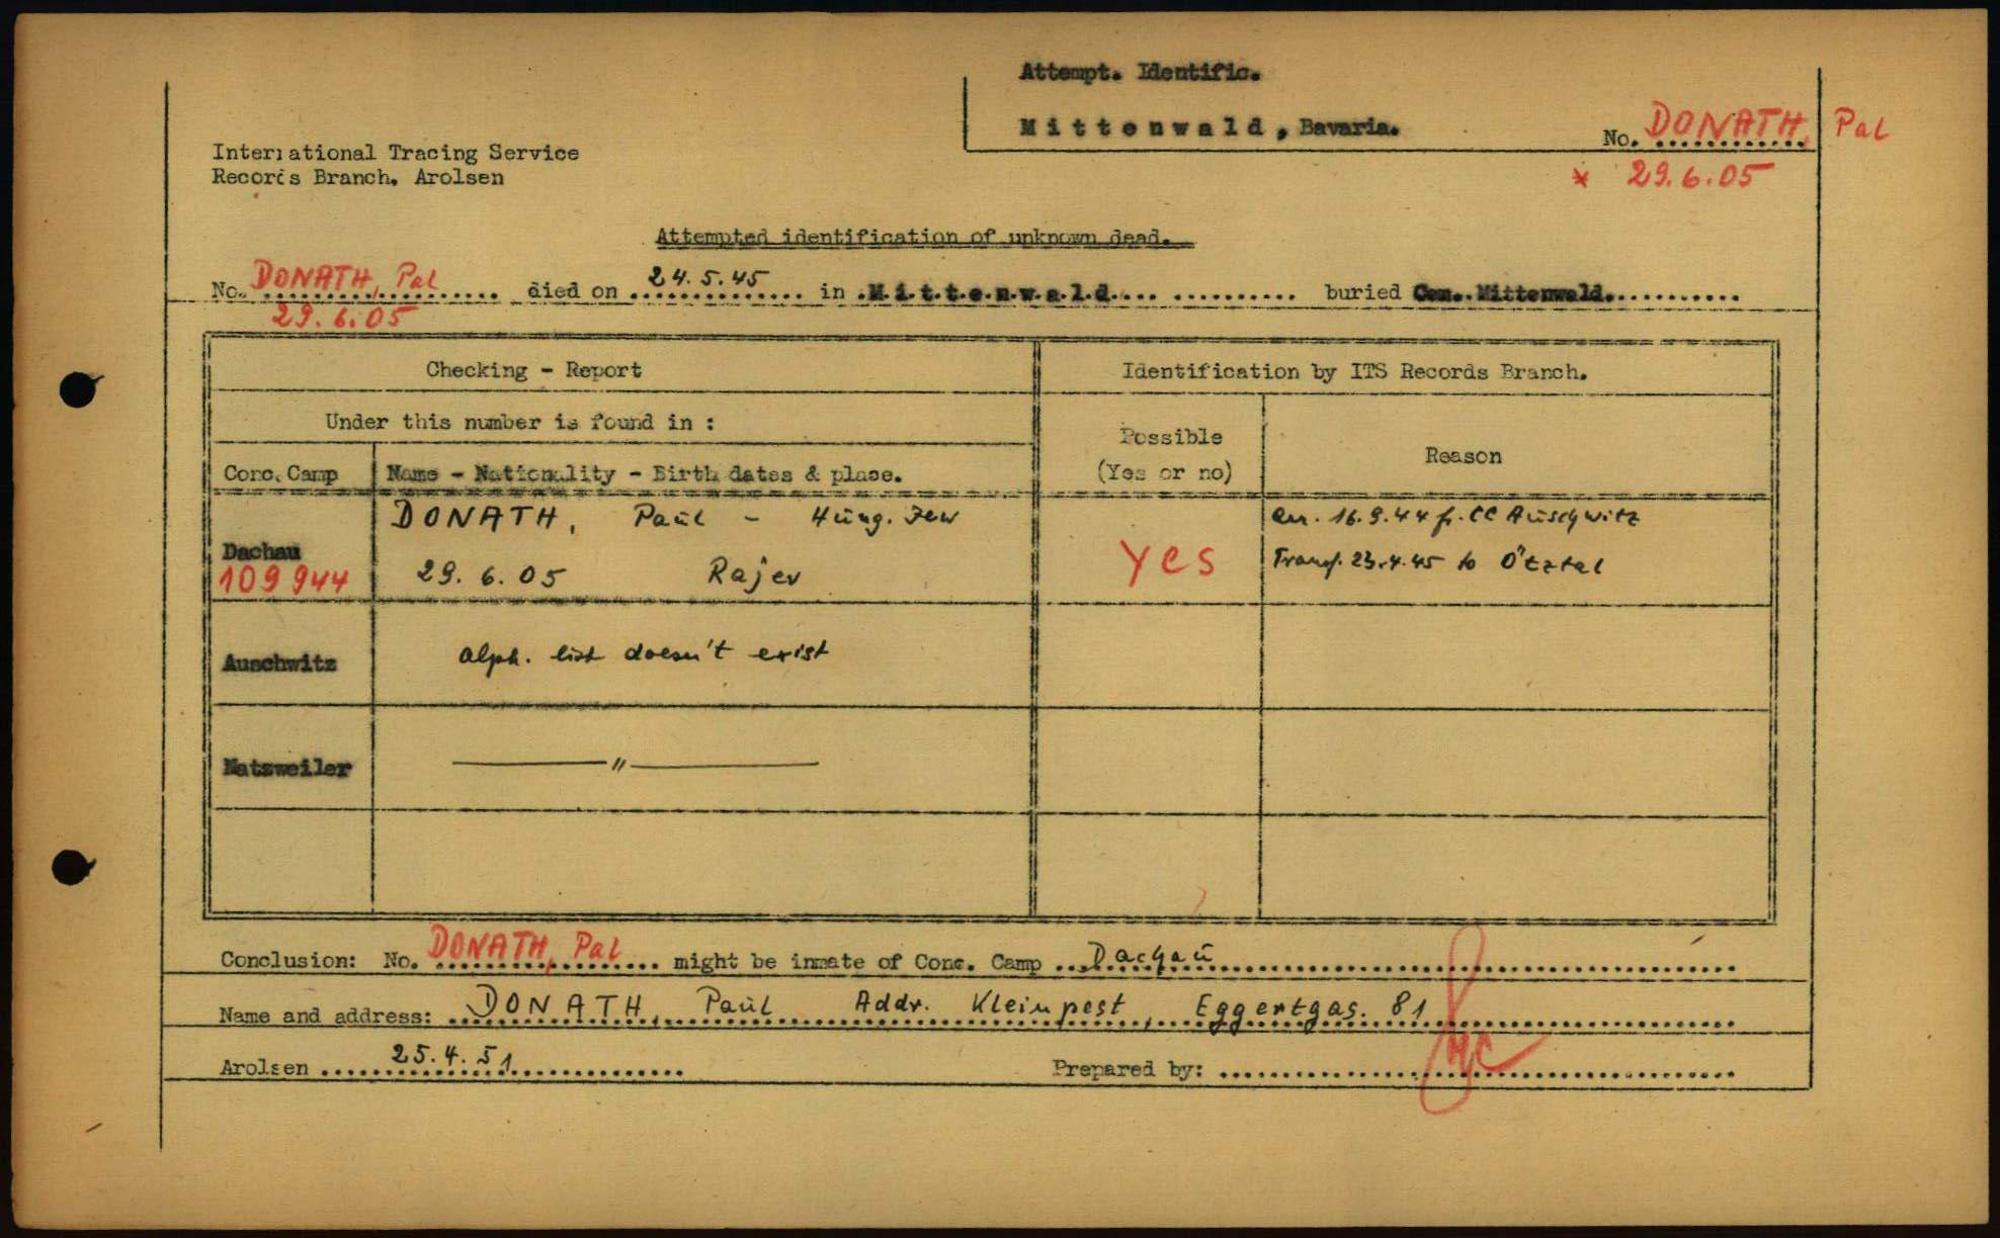 Attempt. Identific.
Mittenwald, Bavaria.
No. DONATH, Pal
* 29.6.05
International Tracing Service
Records Branch, Arolsen
Attempted identification of unknown dead.
No. DONATH, Pal died on 24.5.45 in Mittenwald buried Cem. Mittenwald.
29.6.05
Checking - Report Identification by ITS Records Branch.
Under this number is found in :
Possible
(Yes or no)
Reason
Conc. Camp Name - Nationality - Birth dates & place.
DONATH, Paul - Hung. Jew arr. 16.9.44 fr. CC Auschwitz
Dachau
109944 29.6.05 Rajev yes Transf. 23.4.45 to Ötztal
Auschwitz alph. list doesn't exist
Natzweiler — " —
Conclusion: No. DONATH, Pal might be inmate of Conc. Camp Dachau
Name and address: DONATH, Paul Addr. Kleinpest, Eggertgas. 81
Arolsen 25.4.51 Prepared by: